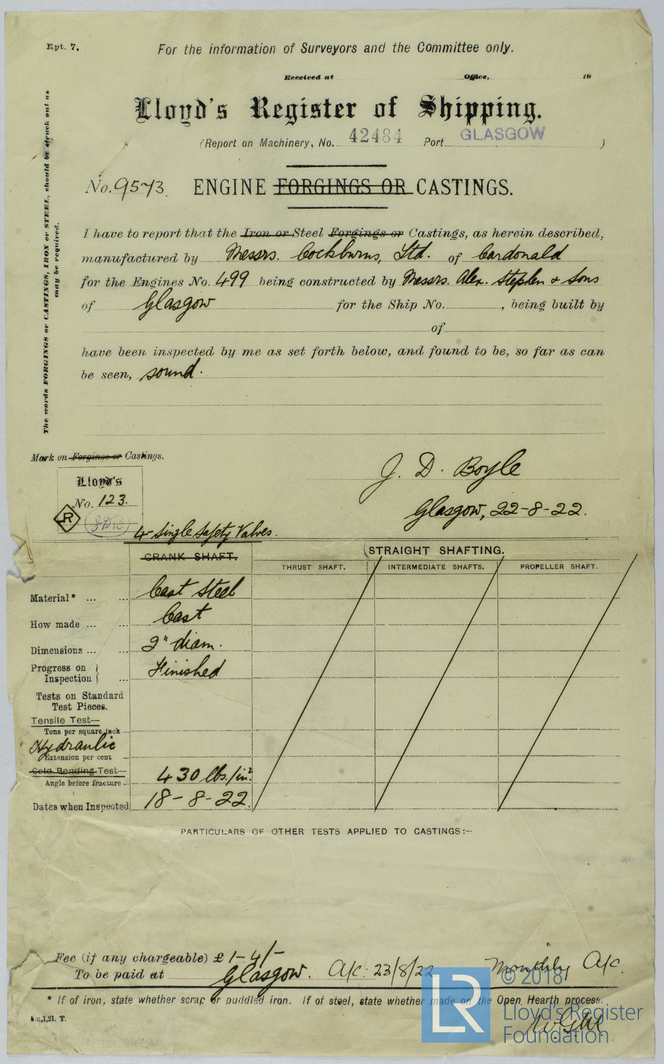 Rpt. 7.
For the information of Surveyors and the Committee only.
Received at Office, 19
Lloyd's Register of Shipping.
(Report on Machinery, No. 42484 Port GLASGOW )
No. 9573. ENGINE FORGINGS OR CASTINGS.
The words FORGINGS or CASTINGS, IRON or STEEL, should be struck out as
may be required.
I have to report that the Iron or Steel Forgings or Castings, as herein described,
manufactured by Messrs. Cockburns, Ltd. of Cardonald
for the Engines No. 499 being constructed by Messrs. Alex. Stephen & Sons
of Glasgow for the Ship No. , being built by
of
have been inspected by me as set forth below, and found to be, so far as can
be seen, sound.
Mark on Forgings or Castings.
Lloyd's
No. 123.
LR
J. D. Boyle
Glasgow, 22-8-22.
4-Single Safety Valves.
CRANK SHAFT. STRAIGHT SHAFTING.
THRUST SHAFT. INTERMEDIATE SHAFTS. PROPELLER SHAFT.
Material* ... ... Cast Steel
How made ... ... Cast
Dimensions ... ... 2" diam.
Progress on
Inspection } ... Finished
Tests on Standard
Test Pieces.
Tensile Test—
Tons per square inch
Hydraulic
Extension per cent
Cold Bending Test— 430 lbs./in²
Angle before fracture
Dates when Inspected 18-8-22.
PARTICULARS OF OTHER TESTS APPLIED TO CASTINGS:—
Fee (if any chargeable) £ 1-4/-
To be paid at Glasgow. A/c: 23/8/22 Monthly A/c.
* If of iron, state whether scrap or puddled iron. If of steel, state whether made on the Open Hearth process.
4m,1,21. T.
LR
© 2018
Lloyd's Register
Foundation